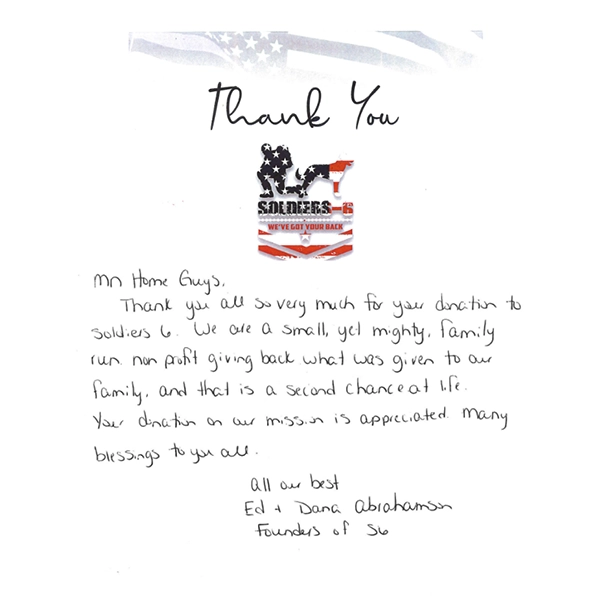 Thank You
SOLDIERS-6
WE'VE GOT YOUR BACK
Mn Home Guys,
Thank you all so very much for your donation to
soldiers 6. We are a small, yet mighty, family
run non profit giving back what was given to our
family, and that is a second chance at life.
Your donation on our mission is appreciated. Many
blessings to you all.
All our best
Ed + Dana Abrahamson
Founders of S6